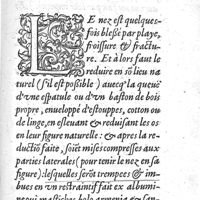 LE nez est quelques-
fois blessé par playe,
froissure & fractu-
re. Et alors faut le
reduire en sõ lieu na
turel (s'il est possible) auecq' la queuë
d'vne espatule ou d'vn baston de bois
propre, enueloppé d'estouppes, cotton ou
de linge, en esleuant & reduisant les os
en leur figure naturelle : & apres la re-
ductiõ faite, soiẽt mises compresses aux
parties laterales (pour tenir le nez en sa
figure) : lesquelles serõt trempees & im-
bues en vn restraintif fait ex albumi-